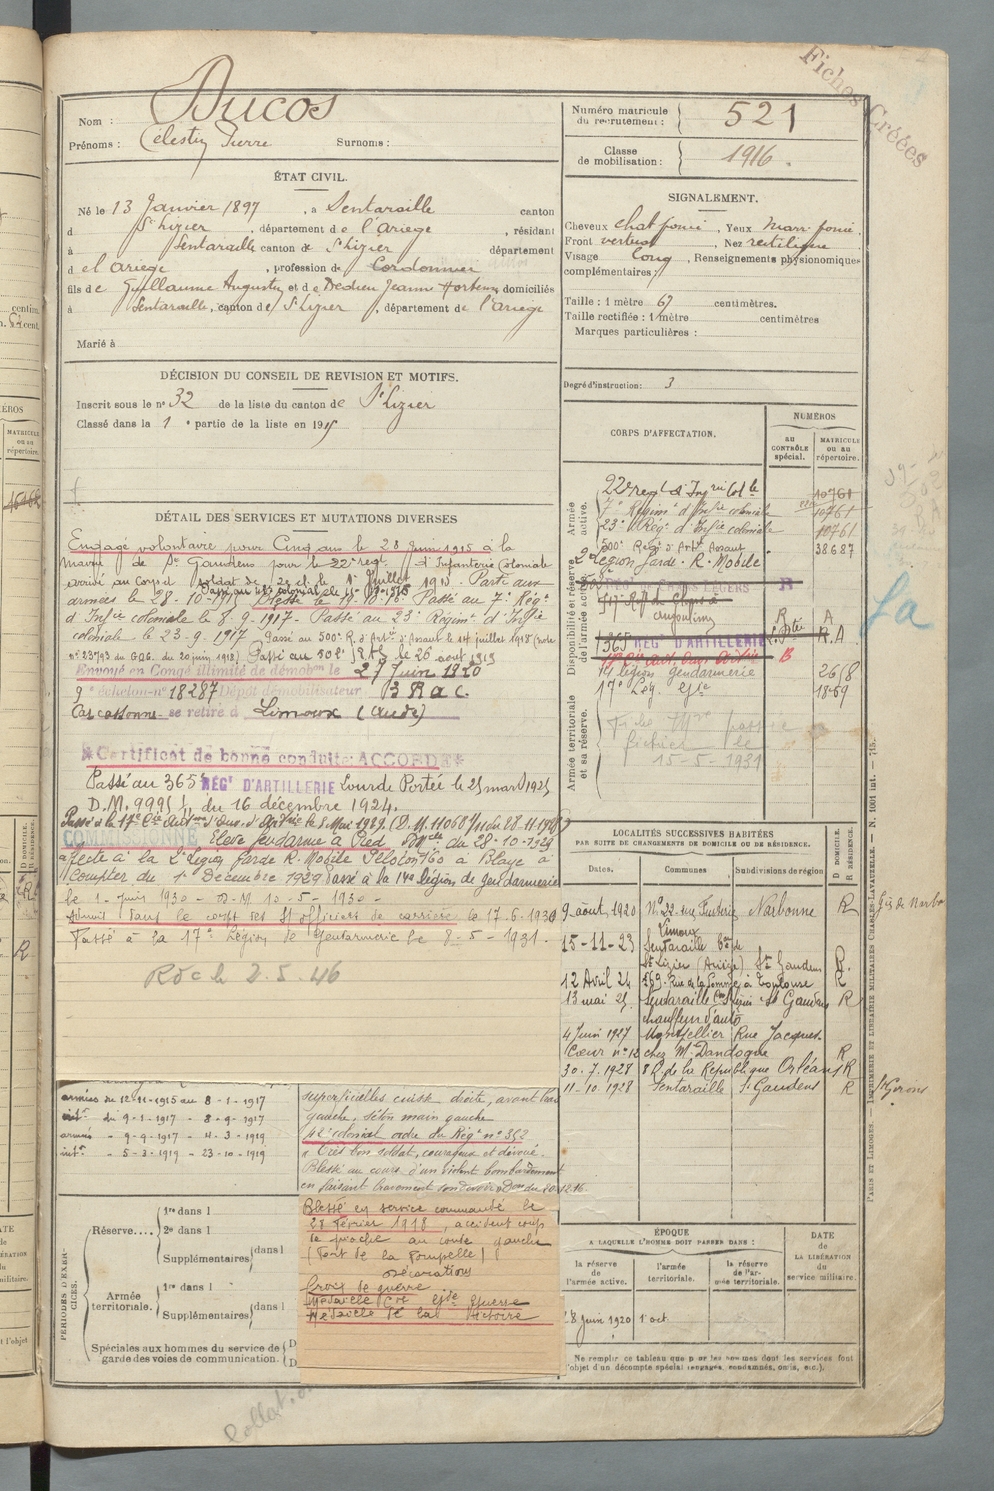 Fiches Créées
Nom : Ducos
Prénoms : Célestin Pierre Surnoms :
ÉTAT CIVIL.
Né le 13 Janvier 1897, à Sentaraille canton
d St Lizier, département de l'Ariège, résidant
à Sentaraille canton de St Lizier département
d el'Ariège, profession de Cordonnier
fils de Guillaume Augustin et de Dedieu Jeanne Hortense domiciliés
à Sentaraille, canton de St Lizier, département de l'Ariège
Marié à
DÉCISION DU CONSEIL DE REVISION ET MOTIFS.
Inscrit sous le n° 32 de la liste du canton de St Lizier
Classé dans la 1e partie de la liste en 1915
DÉTAIL DES SERVICES ET MUTATIONS DIVERSES
Engagé volontaire pour Cinq ans le 28 Juin 1915 à la
mairie de St Gaudens pour le 22e regt d'Infanterie Coloniale
arrivé au Corps d soldat de 2e cl. le 1er Juillet 1915. Parti aux
armées le 28-10-1915 Blessé le 19-10-16. Passé au 7e Régt
d'Infie coloniale le 8-9-1917. Passé au 23e Régim. d'Infie
coloniale le 23-9-1917 Passé au 500e R. d'Artie d'Assaut le 14 juillet 1918 (note
n° 23793 du GQG. du 20 juin 1918) Passé au 502e RAS le 26 août 1919
Envoyé en Congé illimité de démobon le 27 Juin 1920
9e Echelon n° 18287 Dépôt démobilisateur B R a c.
Carcassonne se retire à Limoux (Aude)
*Certificat de bonne conduite ACCORDÉ*
Passé au 365e RÉGt D'ARTILLERIE Lourde Portée le 25 mars 1925
D.M. 9995 du 16 décembre 1924.
COMMISSIONNÉ Elève gendarme à Pied Dmelle du 28-10-1929
affecté à la 2e Légion Garde R. Mobile Peloton 160 à Blaye à
Compter du 1er Décembre 1929 Passé à la 14e légion de gendarmerie
le 1 juin 1930 - D.M 10-5-1930 -
Admis dans le corps des St officiers de carrière le 17-6-1930
Passé à la 17e Légion de Gendarmerie le 8-5-1931.
RDC le 2.5.46
armées du 12-11-1915 au 8-1-1917
intr du 9-1-1917 - 8-9-1917
armées - 9-9-1917 - 4-3-1919
intr - 5-3-1919 - 23-10-1919
superficielles cuisse droite, avant bras
gauche, séton main gauche
42e colonial ordre du Régt n° 352
« Très bon soldat, courageux et dévoué.
Blessé au cours d'un violent bombardement
en faisant bravement son devoir » Don du 20-12-16
Blessé en service commandé le
28 Février 1918, accident coup
de pioche au coude gauche
(Fort de la Pompelle)
Décorations
Croix de guerre
Médaille Cve Gde Guerre
Médaille de la Victoire
PÉRIODES D'EXERCICES.
Réserve....
1re dans l
2e dans l
Supplémentaires dans l
Armée territoriale.
1re dans l
Supplémentaires dans l
Spéciales aux hommes du service de
garde des voies de communication.
Numéro matricule du recrutement : 521
Classe de mobilisation : 1916.
SIGNALEMENT.
Cheveux chat foncé, Yeux marr. foncé.
Front vertical, Nez rectiligne
Visage long, Renseignements physionomiques
complémentaires :
Taille : 1 mètre 67 centimètres.
Taille rectifiée : 1 mètre centimètres
Marques particulières :
Degré d'instruction : 3
CORPS D'AFFECTATION.
NUMÉROS
AU CONTRÔLE spécial.
MATRICULE OU AU répertoire.
Armée active.
22e regt d'Inf rie Col le 10761
7e Régimt d'Infie coloniale 10761
23e Régt d'Infie coloniale 10761
500e Régt d'Artie Assaut 38687
Disponibilité et réserve de l'armée active.
2e Légion Garde R. Mobile
365 RÉGt D'ARTILLERIE L. Ptée R. A
14 légion gendarmerie 26/8
17e Lég. Gie 1869
Armée territoriale et sa réserve.
Fiche Mre passée
fichier le
15-5-1931
LOCALITÉS SUCCESSIVES HABITÉES
PAR SUITE DE CHANGEMENTS DE DOMICILE OU DE RÉSIDENCE.
Dates. Communes Subdivisions de région D DOMICILE. R RÉSIDENCE.
9 août 1920 N° 22 rue Narbonne R
Limoux
15-11-23 Sentaraille Con de
St Lizier (Ariège) St Gaudens R.
12 Avril 24 269 Rue de la Pomme à Toulouse R
13 mai 25 Sentaraille St Gaudens R
chauffeur d'auto
4 Juin 1927 Montpellier Rue Jacques-
Cœur n° 12 chez Mr Dandoque R
30.7.1928 8 R. de la République Orléans R
11-10.1928 Sentaraille St Gaudens R
St Girons
ÉPOQUE
A LAQUELLE L'HOMME DOIT PASSER DANS :
la réserve de l'armée active. l'armée territoriale. la réserve de l'armée territoriale.
DATE de LA LIBÉRATION du service militaire.
28 Juin 1920 1 oct
Ne remplir ce tableau que pour les hommes dont les services font
l'objet d'un décompte spécial (engagés, condamnés, omis, etc.).
PARIS ET LIMOGES. — IMPRIMERIE ET LIBRAIRIE MILITAIRES CHARLES-LAVAUZELLE. — N. 1001 int. — 715.